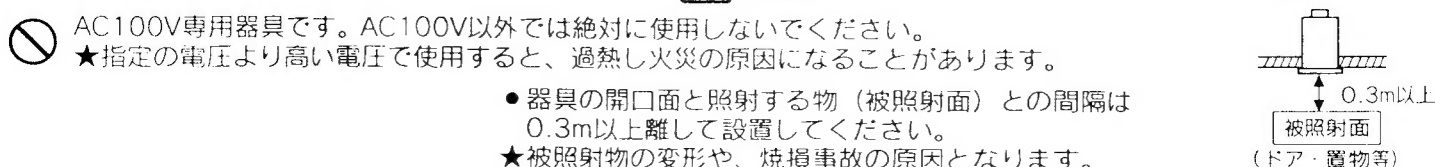 AC100V専用器具です。AC100V以外では絶対に使用しないでください。
★指定の電圧より高い電圧で使用すると、過熱し火災の原因になることがあります。
●器具の開口面と照射する物（被照射面）との間隔は
0.3m以上離して設置してください。
★被照射物の変形や、焼損事故の原因となります。
0.3m以上
被照射面
(ドア・置物等)